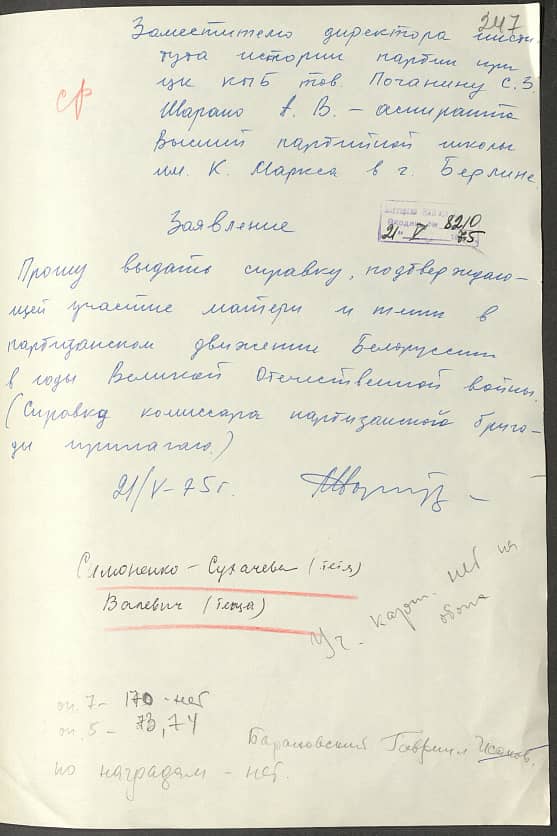 247
Заместителю директора инсти
тута истории партии при
ЦК КПБ тов. Почанину С.З.
ср
Шарапо А. В. – аспиранта
Высшей партийной школы
им. К. Маркса в г. Берлине.
Входящ.
8210
21 V 75
Заявление
Прошу выдать справку, подтверждаю-
щей участие матери и тёти в
партизанском движении Белоруссии
в годы Великой Отечественной войны.
(Справка комиссара партизанской брига-
ды прилагаю.)
21/V-75г.
Симоненко-Сухачева (тётя)
Валевич (теща)
Уч. карт. нет на
обоих
оп. 7- 170 - нет
оп. 5 - 73,74
Барановский Гавриил Исаков.
по наградам - нет.